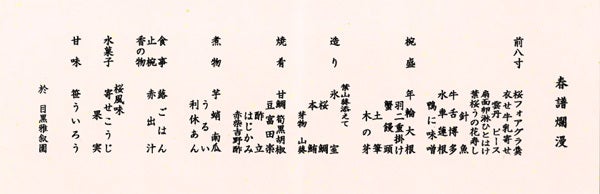 春譜爛漫
前八寸
桜フォアグラ羹
衣せ牛乳寄せ
雲丹 ピース
扇面卵淋ひとはけ
葉桜うの花寿し
針魚
牛舌博多
水車蓮根
鴨に味噌
椀盛
年輪大根
羽二重掛け
蟹饅頭
土筆
木の芽
造り
葉山葵添えて
氷室
桜鯛
本鮪
芽物 山葵
焼肴
甘鯛筍黒胡椒
豆富田楽
酢立
はじかみ
赤柴吉野酢
煮物
芋蛸南瓜
うるい
利休あん
食事
蕗ごはん
止椀
赤出汁
香の物
水菓子
桜風味
寄せこうじ
果実
甘味
笹ういろう
於 目黒雅叙園